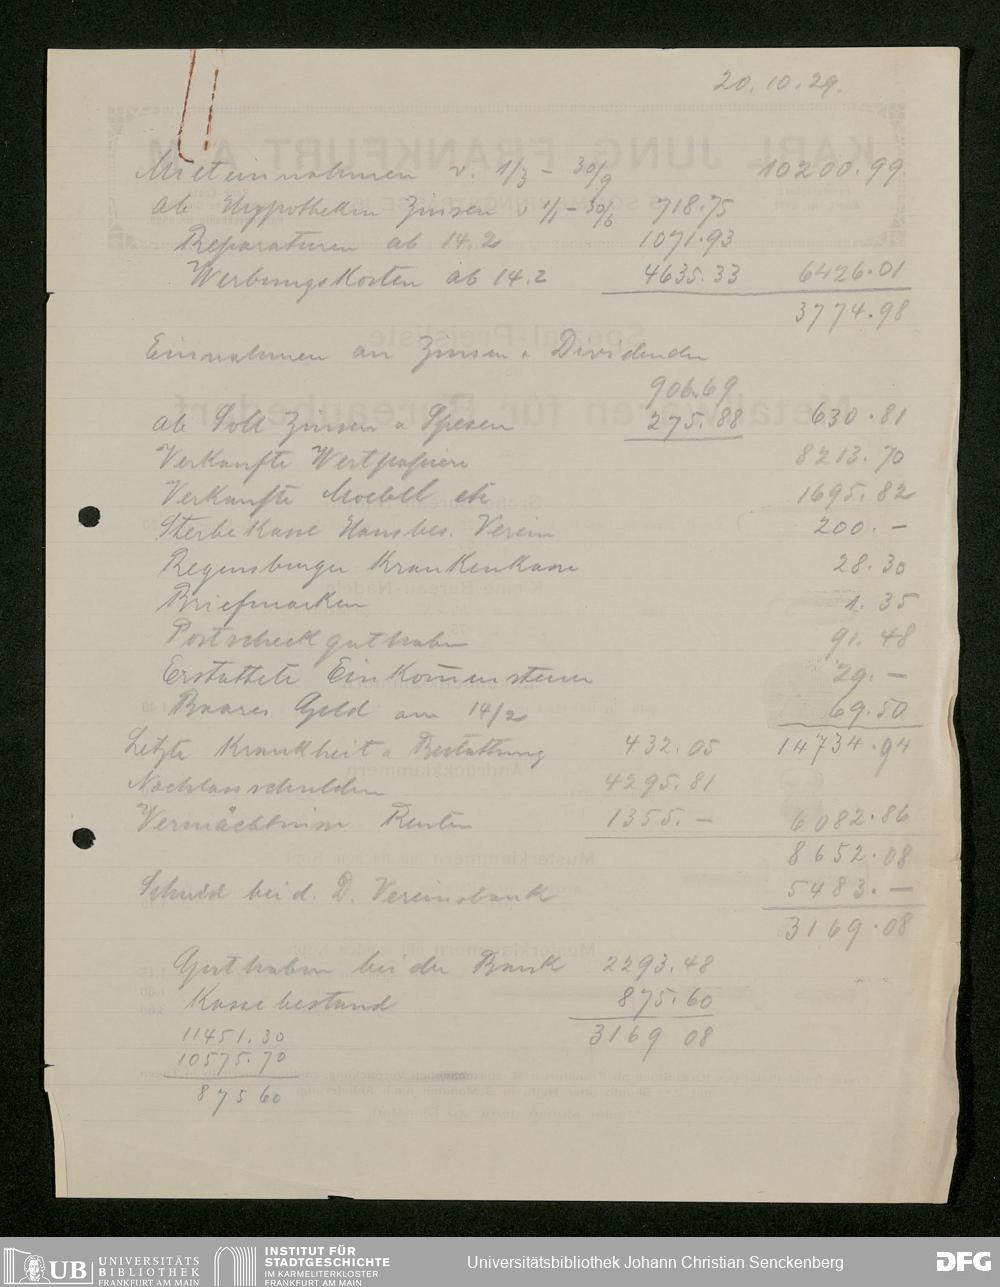 20.10.29.
Mieteinnahmen v. 1/3 - 30/9 10200.99
ab Hypotheken Zinsen v 1/1 - 30/6 718.75
Reparaturen ab 14.2 1071.93
Werbungskosten ab 14.2 4635.33 6426.01
3774.98
Einnahmen an Zinsen & Dividenden
906.69
ab Soll Zinsen & Spesen 275.88 630.81
Verkaufte Wertpapiere 8213.70
Verkaufte Moebel etc 1695.82
Sterbe Kasse Hausbes. Verein 200.-
Regensburger Krankenkasse 28.30
Briefmarken 1.35
Postscheckguthaben 91.48
Erstattete Einkom̄ensteuer 29.-
Baares Geld am 14/2 69.50
Letzte Krankheit & Bestattung 432.05 14734.94
Nachlassschulden 4295.81
Vermächtnisse Renten 1355.- 6082.86
8652.08
Schuld bei d. D. Vereinsbank 5483.-
3169.08
Guthaben bei der Bank 2293.48
Kassebestand 875.60
3169 08
11451.30
10575.70
875 60
UB UNIVERSITÄTS BIBLIOTHEK FRANKFURT AM MAIN
INSTITUT FÜR STADTGESCHICHTE IM KARMELITERKLOSTER FRANKFURT AM MAIN
Universitätsbibliothek Johann Christian Senckenberg
DFG